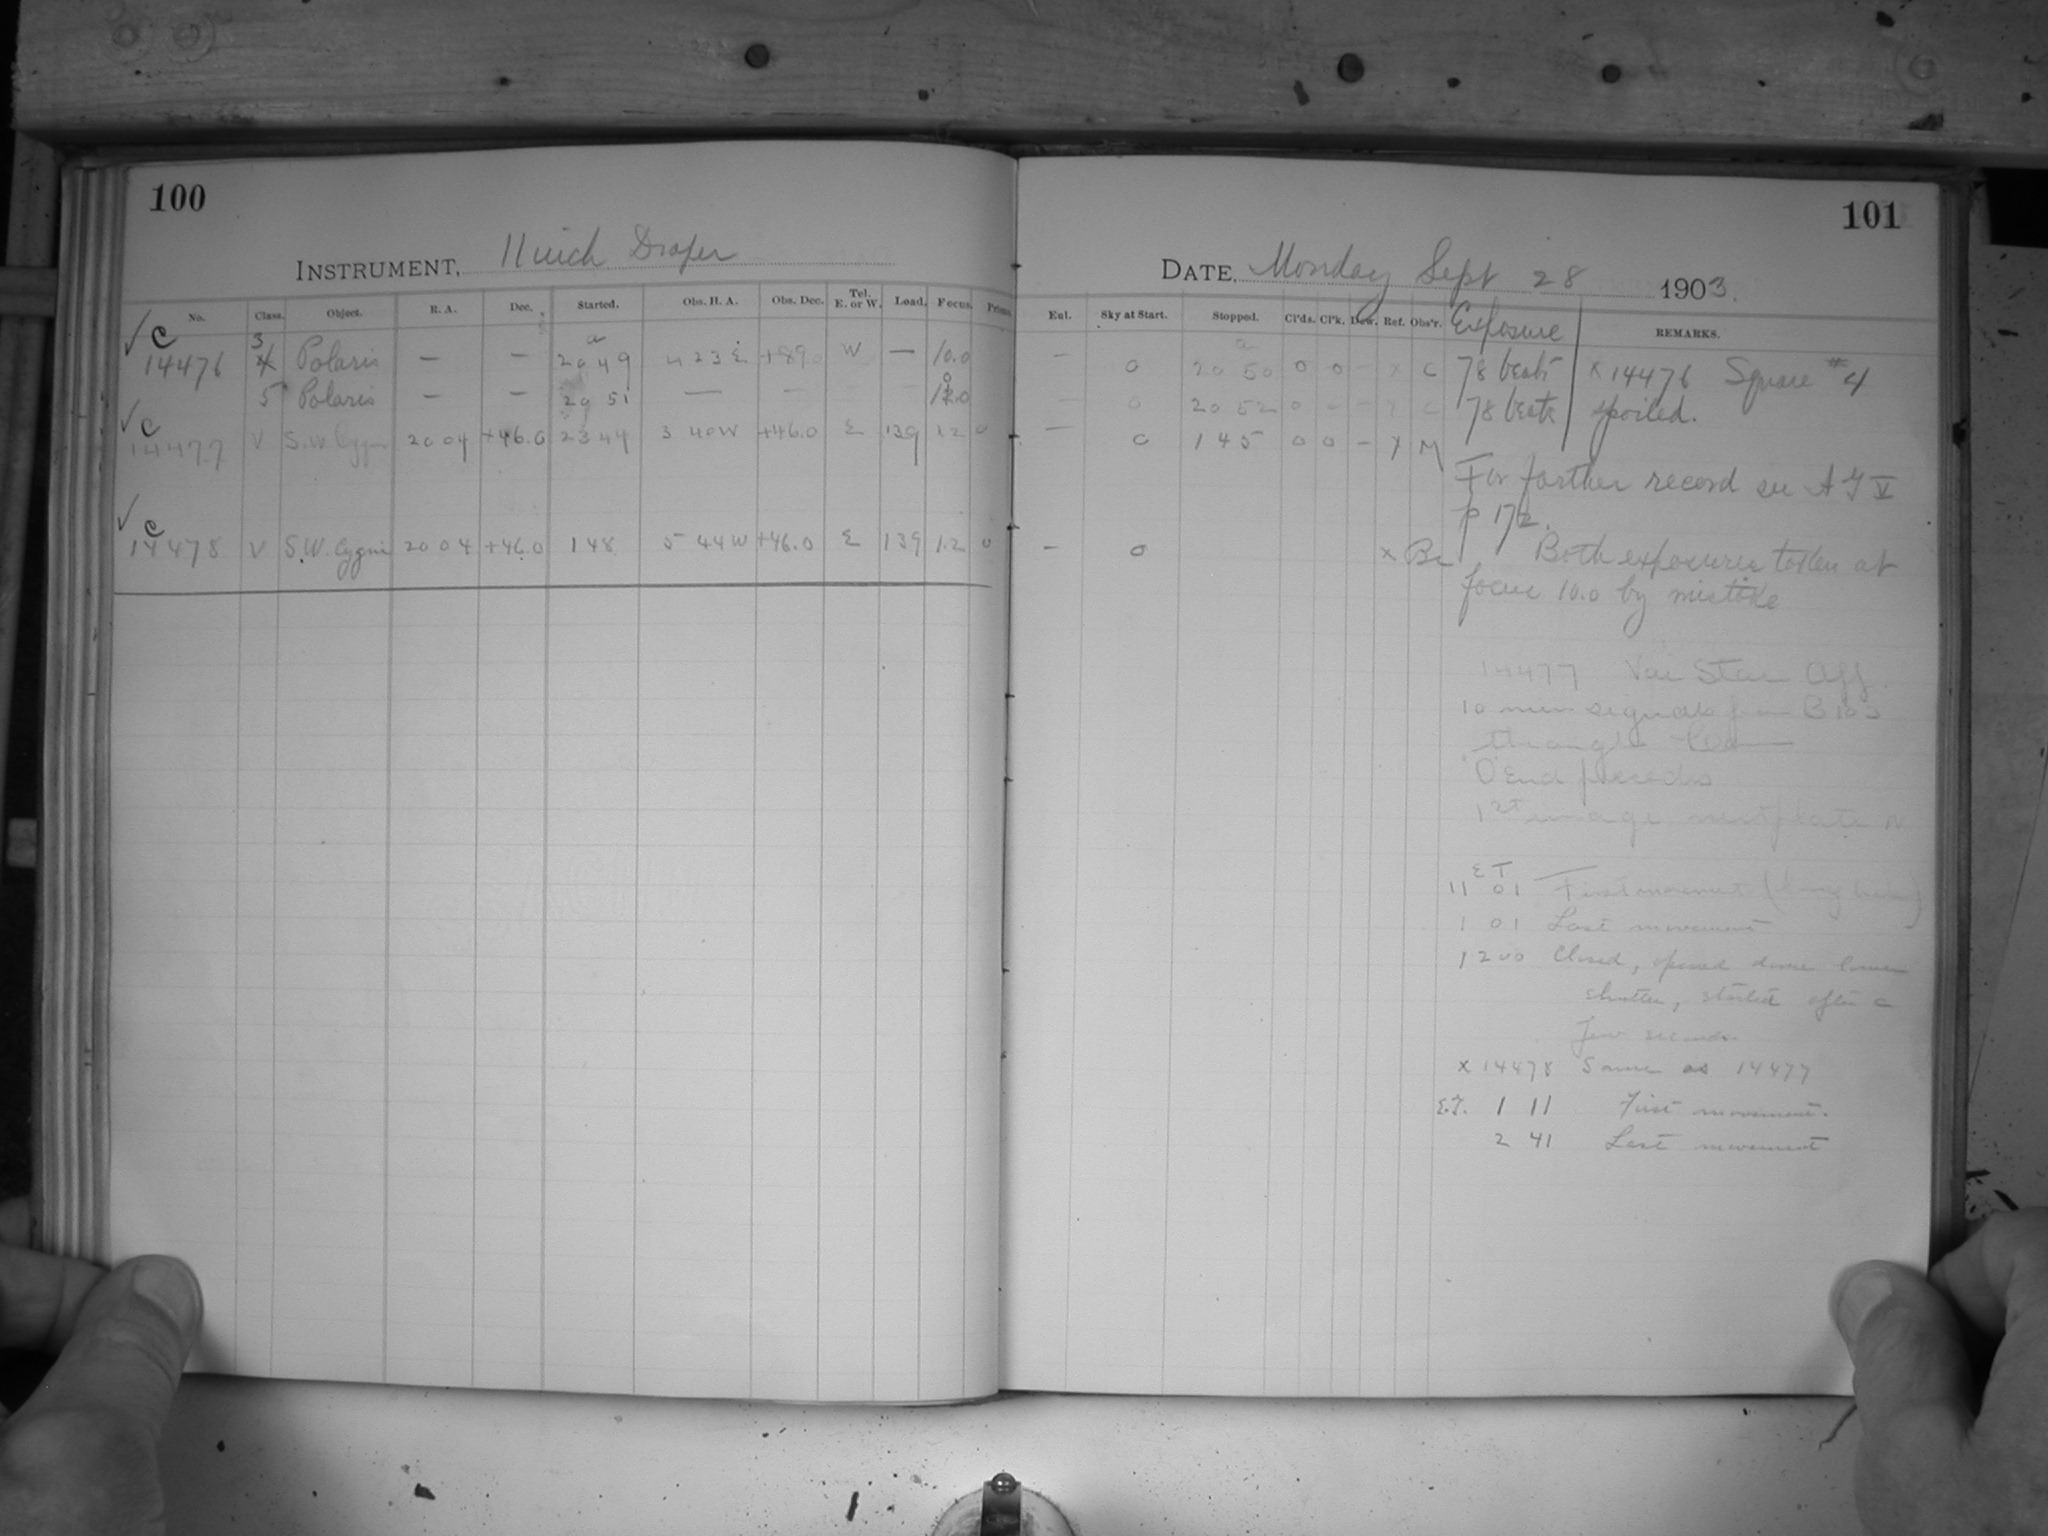 100
INSTRUMENT, 11 inch Draper
No. Class. Object. R. A. Dec. Started. Obs. H. A. Obs. Dec. Tel. E. or W. Load. Focus.
✓ C
14476 3 Polaris — — 20 49 4 23 E +89.0 W — 10.0
5 Polaris — — 20 51 —
✓ C
14477 V S.W. Cygni 20 04 +46.0 23 44 3 40 W +46.0 E 139 12 0
✓ C
14478 V S.W. Cygni 20 04 +46.0 1 48 5 44 W +46.0 E 139 12 0
101
DATE, Monday Sept 28 1903.
Eul. Sky at Start. Stopped. Cl'ds. Cl'k. Dew. Ref. Obs'r. Exposure REMARKS.
— 0 20 50 0 0 – x C 78 beats x 14476 Square #4
— 0 20 52 0 – – x C 78 beats spoiled.
— 0 1 45 0 0 – x M
For farther record see A G V
p 172.
— 0 x Be Both exposures taken at
focus 10.0 by mistake
14477 Var Star Aff.
10 min signals from B 103
through
0 End precedes
1st image next plate N
E T
11 01 First movement
1 01 Last movement
1 200 Closed, opened dome lower
shutter, started after a
few seconds.
x 14478 Same as 14477
E.T. 1 11 First movement.
2 41 Last movement